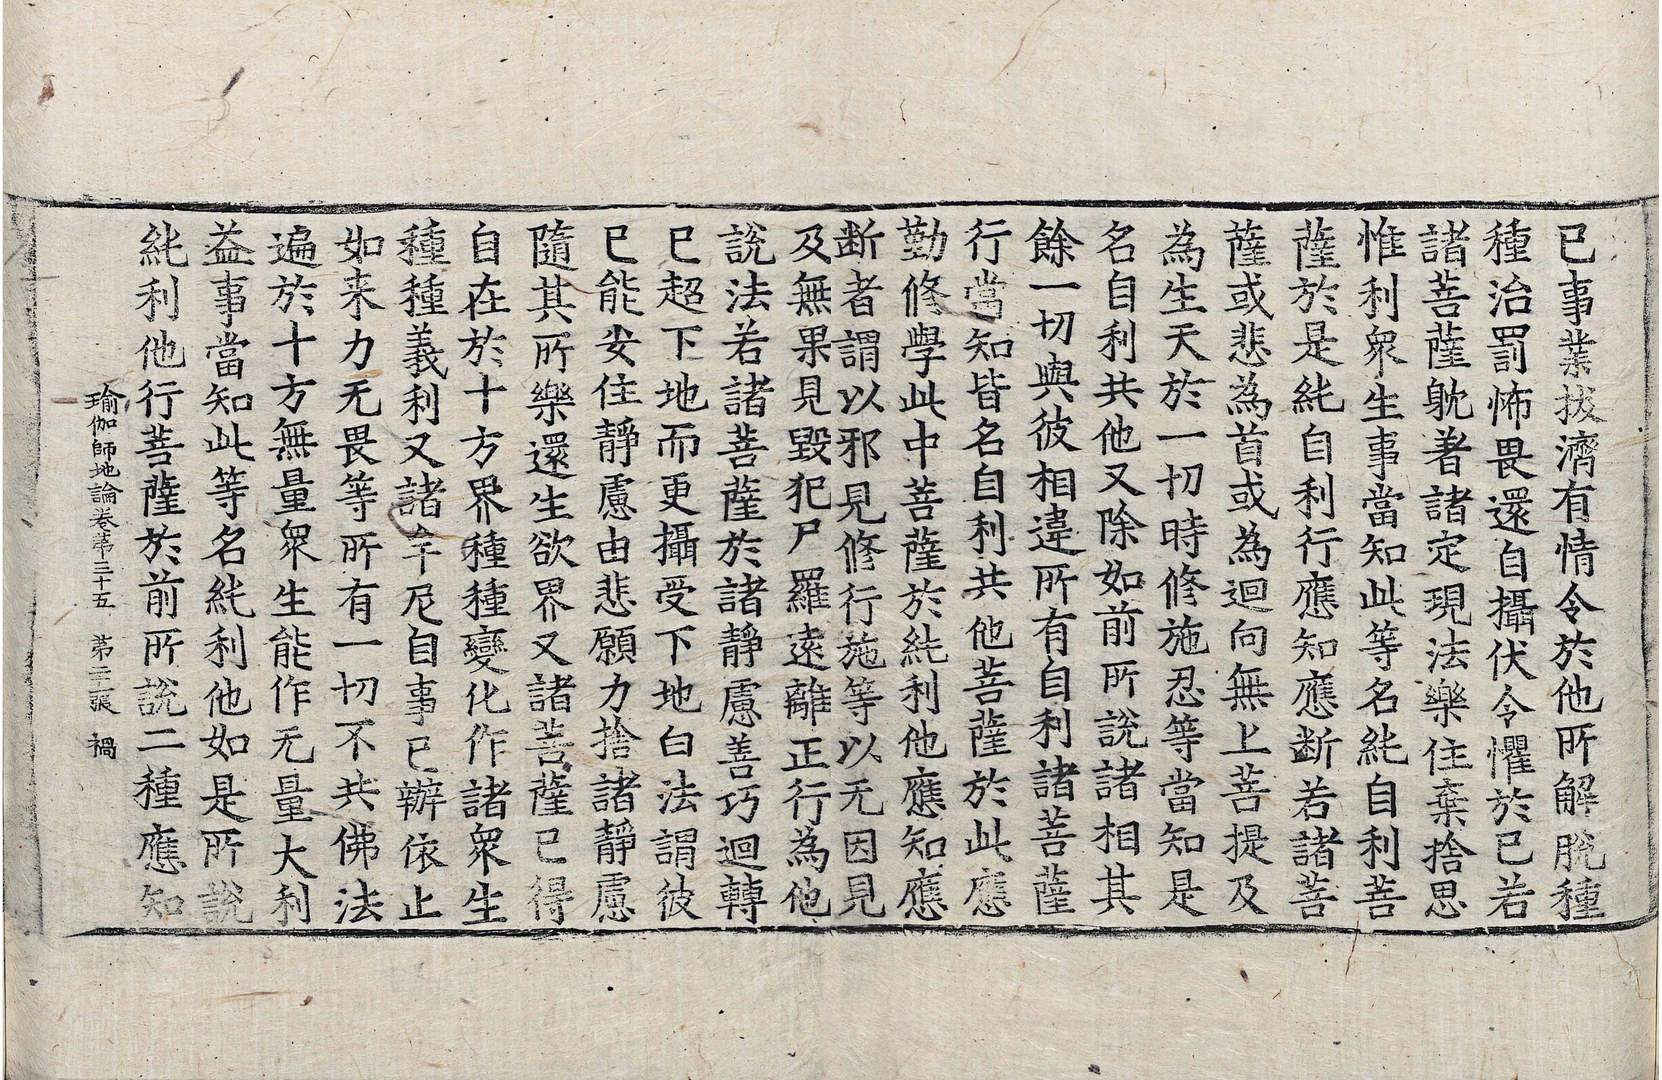 已事業拔濟有情令於他所解脫種
種治罰怖畏還自攝伏令懼於已若
諸菩薩躭著諸定現法樂住棄捨思
惟利衆生事當知此等名純自利菩
薩於是純自利行應知應断若諸菩
薩或悲為首或為迴向無上菩提及
為生天於一切時修施忍等當知是
名自利共他又除如前所說諸相其
餘一切與彼相違所有自利諸菩薩
行當知皆名自利共他菩薩於此應
勤修學此中菩薩於純利他應知應
断者謂以邪見修行施等以无因見
及無果見毀犯尸羅遠離正行為他
說法若諸菩薩於諸靜慮善巧迴轉
已超下地而更攝受下地白法謂彼
已能安住靜慮由悲願力捨諸靜慮
隨其所樂還生欲界又諸菩薩已得
自在於十方界種種變化作諸衆生
種種義利又諸牟尼自事已辦依止
如来力无畏等所有一切不共佛法
遍於十方無量衆生能作无量大利
益事當知此等名純利他如是所說
純利他行菩薩於前所說二種應知
瑜伽師地論卷苐三十五　第三張　禍